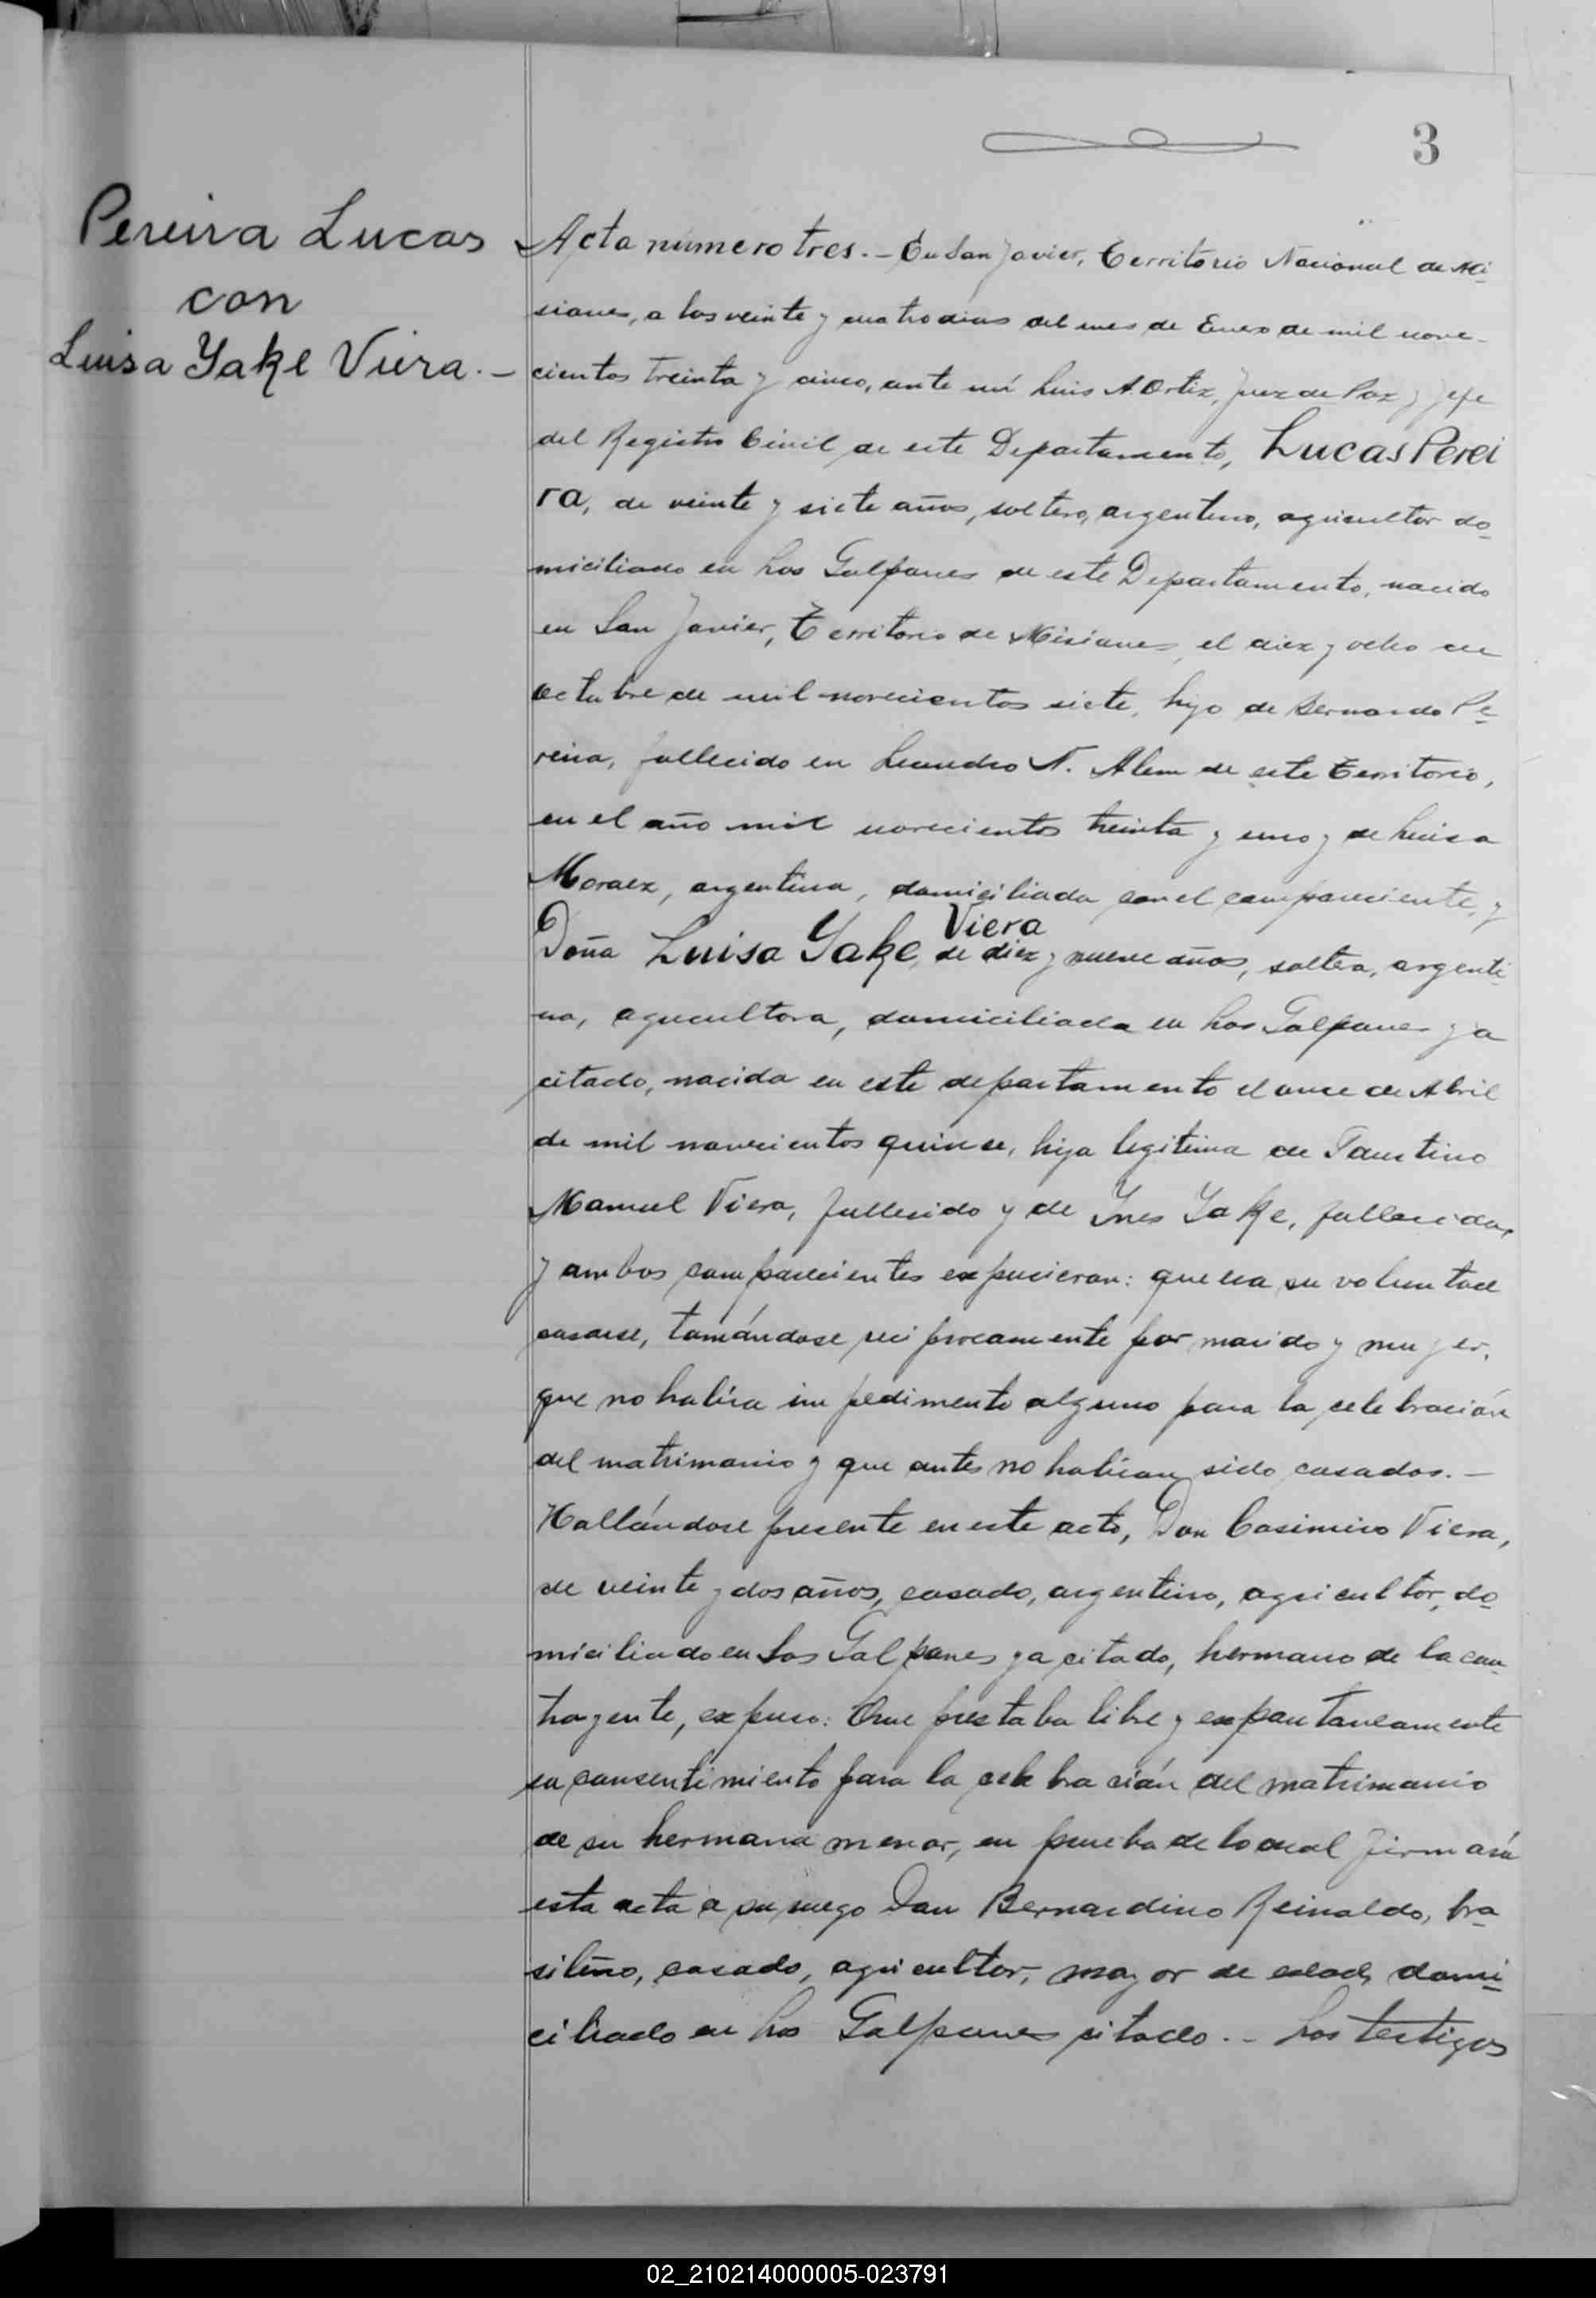 3
Pereira Lucas
con
Luisa Yake Viera.-
Acta número tres.- En San Javier, Territorio Nacional de Mi
siones, a los veinte y cuatro dias del mes de Enero de mil nove-
cientos treinta y cinco, ante mí Luis A Ortiz, Juez de Paz y Jefe
del Registro Civil de este Departamento, Lucas Perei
ra, de veinte y siete años, soltero, argentino, agricultor do
miciliado en Los Galpones de este Departamento, nacido
en San Javier, Territorio de Misiones, el diez y ocho de
octubre de mil novecientos siete, hijo de Bernardo Pe
reira, fallecido en Leandro N. Alem de este Territorio,
en el año mil novecientos treinta y uno y de Luisa
Moraez, argentina, domiciliada con el compareciente, y
Viera
Doña Luisa Yake, de diez y nueve años, soltera, argenti
na, agricultora, domiciliada en Los Galpones ya
citado, nacida en este departamento el once de Abril
de mil novecientos quinse, hija legitima de Faustino
Manuel Viera, fallecido y de Ynes Yake, fallecida,
y ambos comparecientes expusieron: que era su voluntad
casarse, tomándose reciprocamente por marido y mujer,
que no había impedimento alguno para la celebración
del matrimonio y que antes no habían sido casados.-
Hallándose presente en este acto, Don Casimiro Viera,
de veinte y dos años, casado, argentino, agricultor, do
miciliado en Los Galpones ya citado, hermano de la con
trayente, expuso: Que prestaba libre y expontaneamente
su consentimiento para la celebración del matrimonio
de su hermana menor, en prueba de lo cual firmará
esta acta a su ruego Don Bernardino Reinaldo, bra
sileño, casado, agricultor, mayor de edad, domi
ciliado en Los Galpones citado.- Los testigos
02_210214000005-023791